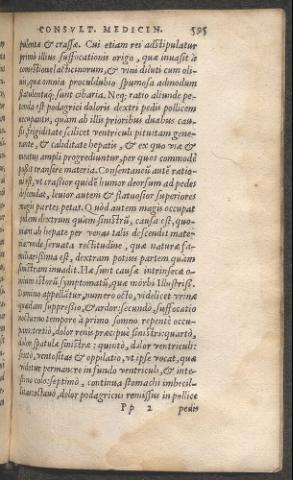 CONSVLT. MEDICIN. 595
pulenta & crassæ. Cui etiam rei adstipulatur
primò illius suffocationis origo, quæ inuasit à
comestione lacticinorum, & vini dicuti cum oli-
uis, quæ omnia proculdubio spumosa admodum
flatulentaq́; sunt cibaria. Neq; ratio aliunde pe-
tenda est podagrici doloris dextri pedis pollicem
occupantis, quàm ab illis prioribus duabus cau-
sis, frigiditate scilicet ventriculi pituitam gene-
rante, & caliditate hepatis, & ex quo viæ &
meatus ampli progrediuntur, per quos commodè
possit transire materia. Consentaneũ autẽ ratio-
ni est, vt crassior quidẽ humor deorsum ad pedes
descendat, leuior autem & flatuosior superiores
magis partes petat. Quòd autem magis occupat
pedem dextrum quàm sinistrũ, causa est, quo-
niam ab hepate per venas talis descendit mate-
ria vnde seruata rectitudine, quæ naturæ fa-
miliarissima est, dextram potius partem quàm
sinistram inuadit. Hæ sunt causæ intrinsecæ o-
mnium istorũ symptomatũ, quæ morbi Illustriss.
Domino appellãtur, numero octo, videlicet vrinæ
quædam suppressio, & ardor: secundò, suffocatio
nocturno tempore à primo somno repentè occu-
pans: tertiò, dolor renis præcipuè sinistri: quartò,
dolor spatulæ sinistræ: quintò, dolor ventriculi:
sextò, ventositas & oppilatio, vt ipse vocat, quæ
videtur permanere in fundo ventriculi, & inte-
stino colo: septimò, continua stomachi imbecil-
litas: octauò, dolor podagricus remissius in pollice
Pp 2 pedis